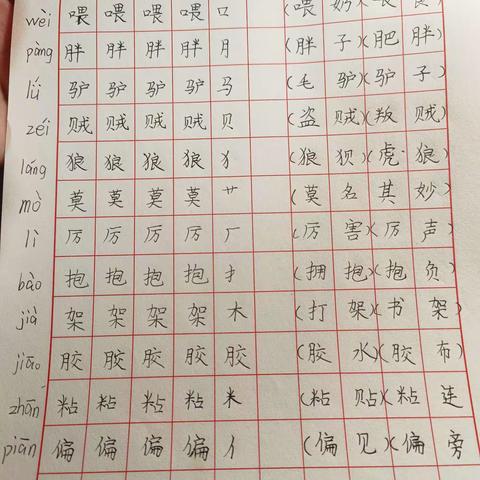 wèi 喂 喂 喂 喂 口 (喂 奶)(喂 食)
pàng 胖 胖 胖 胖 月 (胖 子)(肥 胖)
lǘ 驴 驴 驴 驴 马 (毛 驴)(驴 子)
zéi 贼 贼 贼 贼 贝 (盗 贼)(叛 贼)
láng 狼 狼 狼 狼 犭 (狼 狈)(虎 狼)
mò 莫 莫 莫 莫 艹 (莫 名 其 妙)
lì 厉 厉 厉 厉 厂 (厉 害)(厉 声)
bào 抱 抱 抱 抱 扌 (拥 抱)(抱 负)
jià 架 架 架 架 木 (打 架)(书 架)
jiāo 胶 胶 胶 胶 胶 (胶 水)(胶 布)
zhān 粘 粘 粘 粘 米 (粘 贴)(粘 连)
piān 偏 偏 偏 偏 亻 (偏 见)(偏 旁)